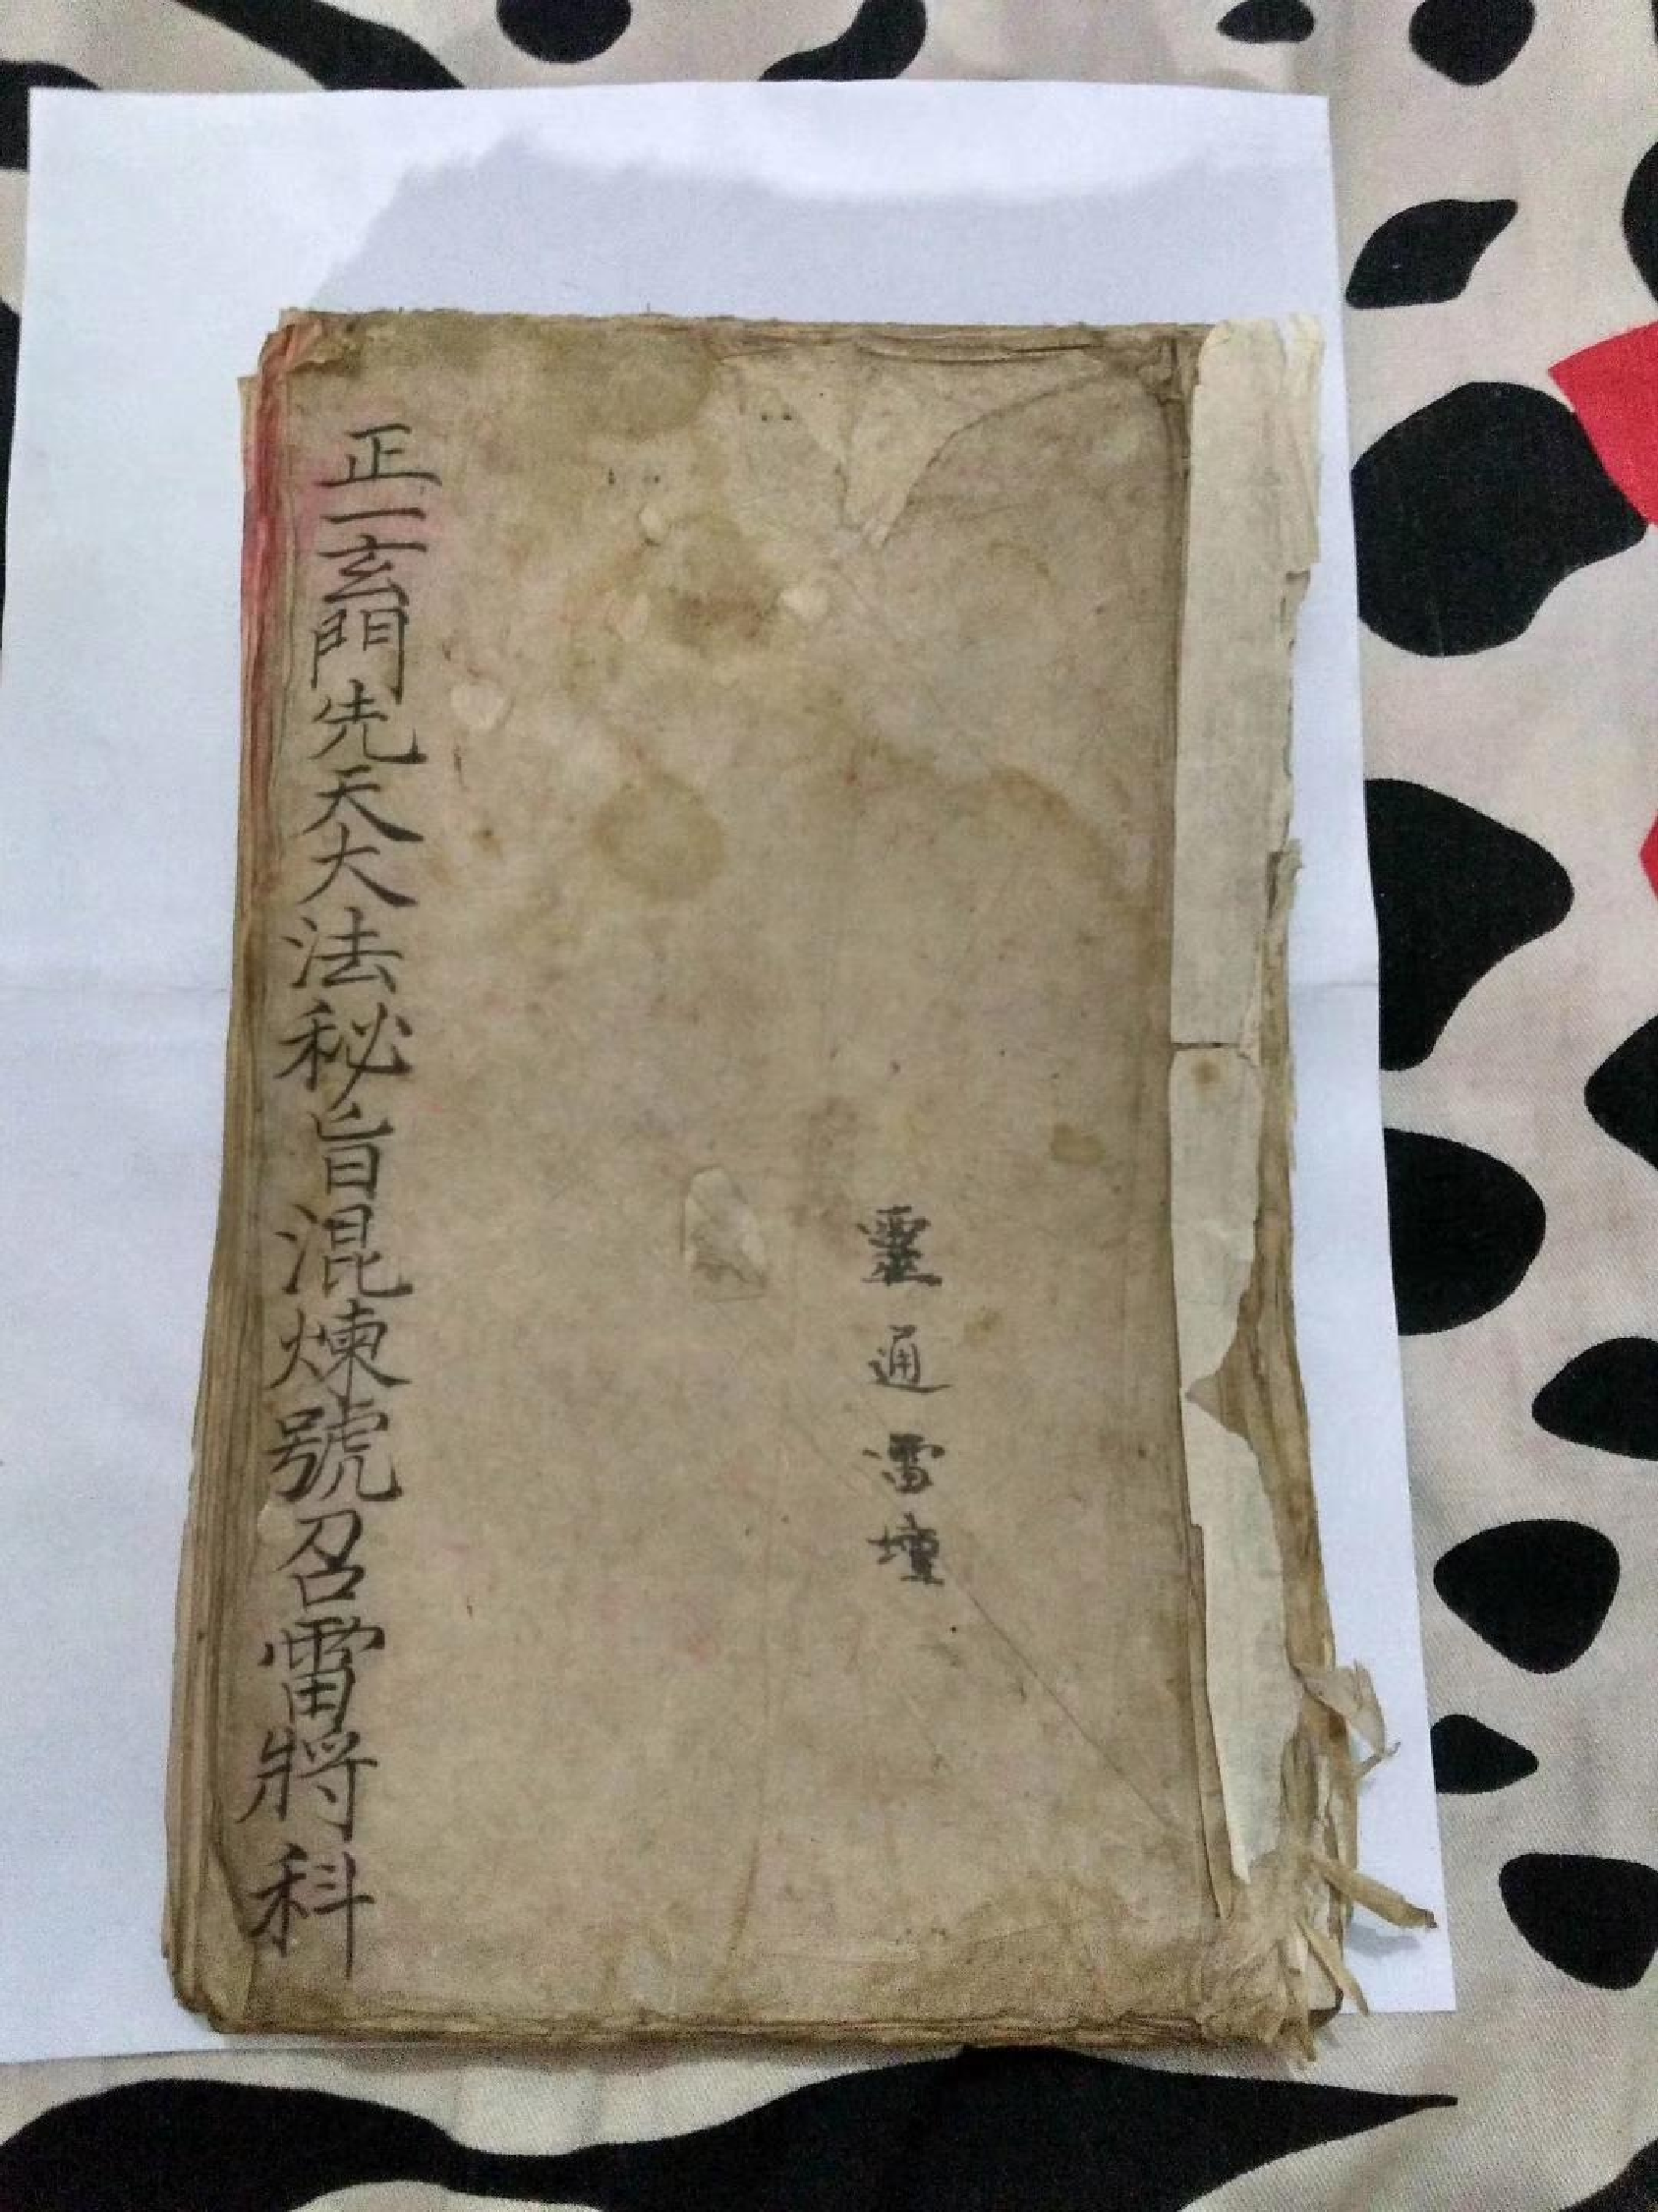 靈通雷壇
正一玄門先天大法秘旨混煉號召雷將科